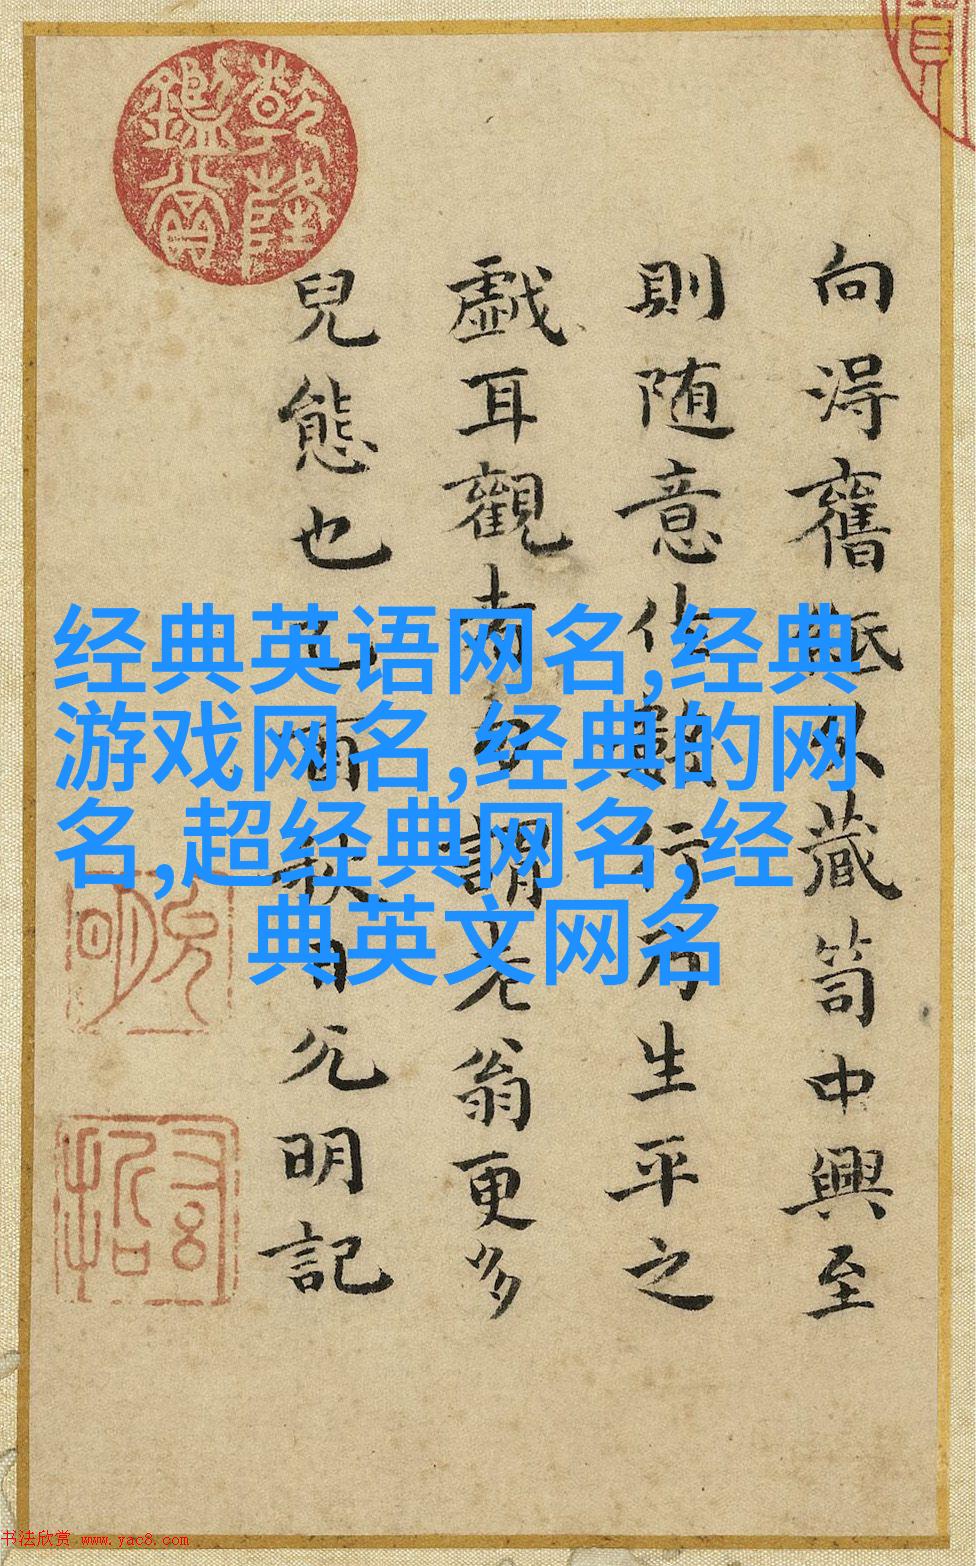 向得舊紙以藏笥中興至
則随意作數行乃生平之
戲耳觀者勿謂老翁更多
兒態也
明記
乾隆
鑑賞
经典英语网名,经典
游戏网名,经典的网
名,超经典网名,经
典英文网名
书法欣赏 www.yac8.com